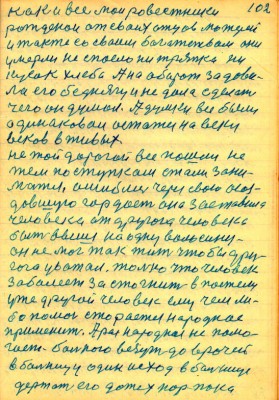 102
как и все мои ровестники
рожденои от своих отцов матерей
и также со своим богатством они
умерли не спасло ни тряпка ни
кусок хлеба А на оборот задови-
ла его беднягу и не дала сделать
чего он думал. А думки все были
одинаковаи остатся на веки
веков в живых
не той дорогой все пошли не
тем поступкам стали зани-
матся, ошиблись через свою
гордост она заставила
человека от другога человека
быть выши на одну волосину-
он не мог так жит чтобы дру-
гога уважал. только что человек
заболеет застогнит в постели
уже другой человек ему чем ли-
бо помог старается народнае
применит. А раз народная не помо-
гает больного везут до врачей
в больницу и один исход в больнице
держат его до тех пор пока